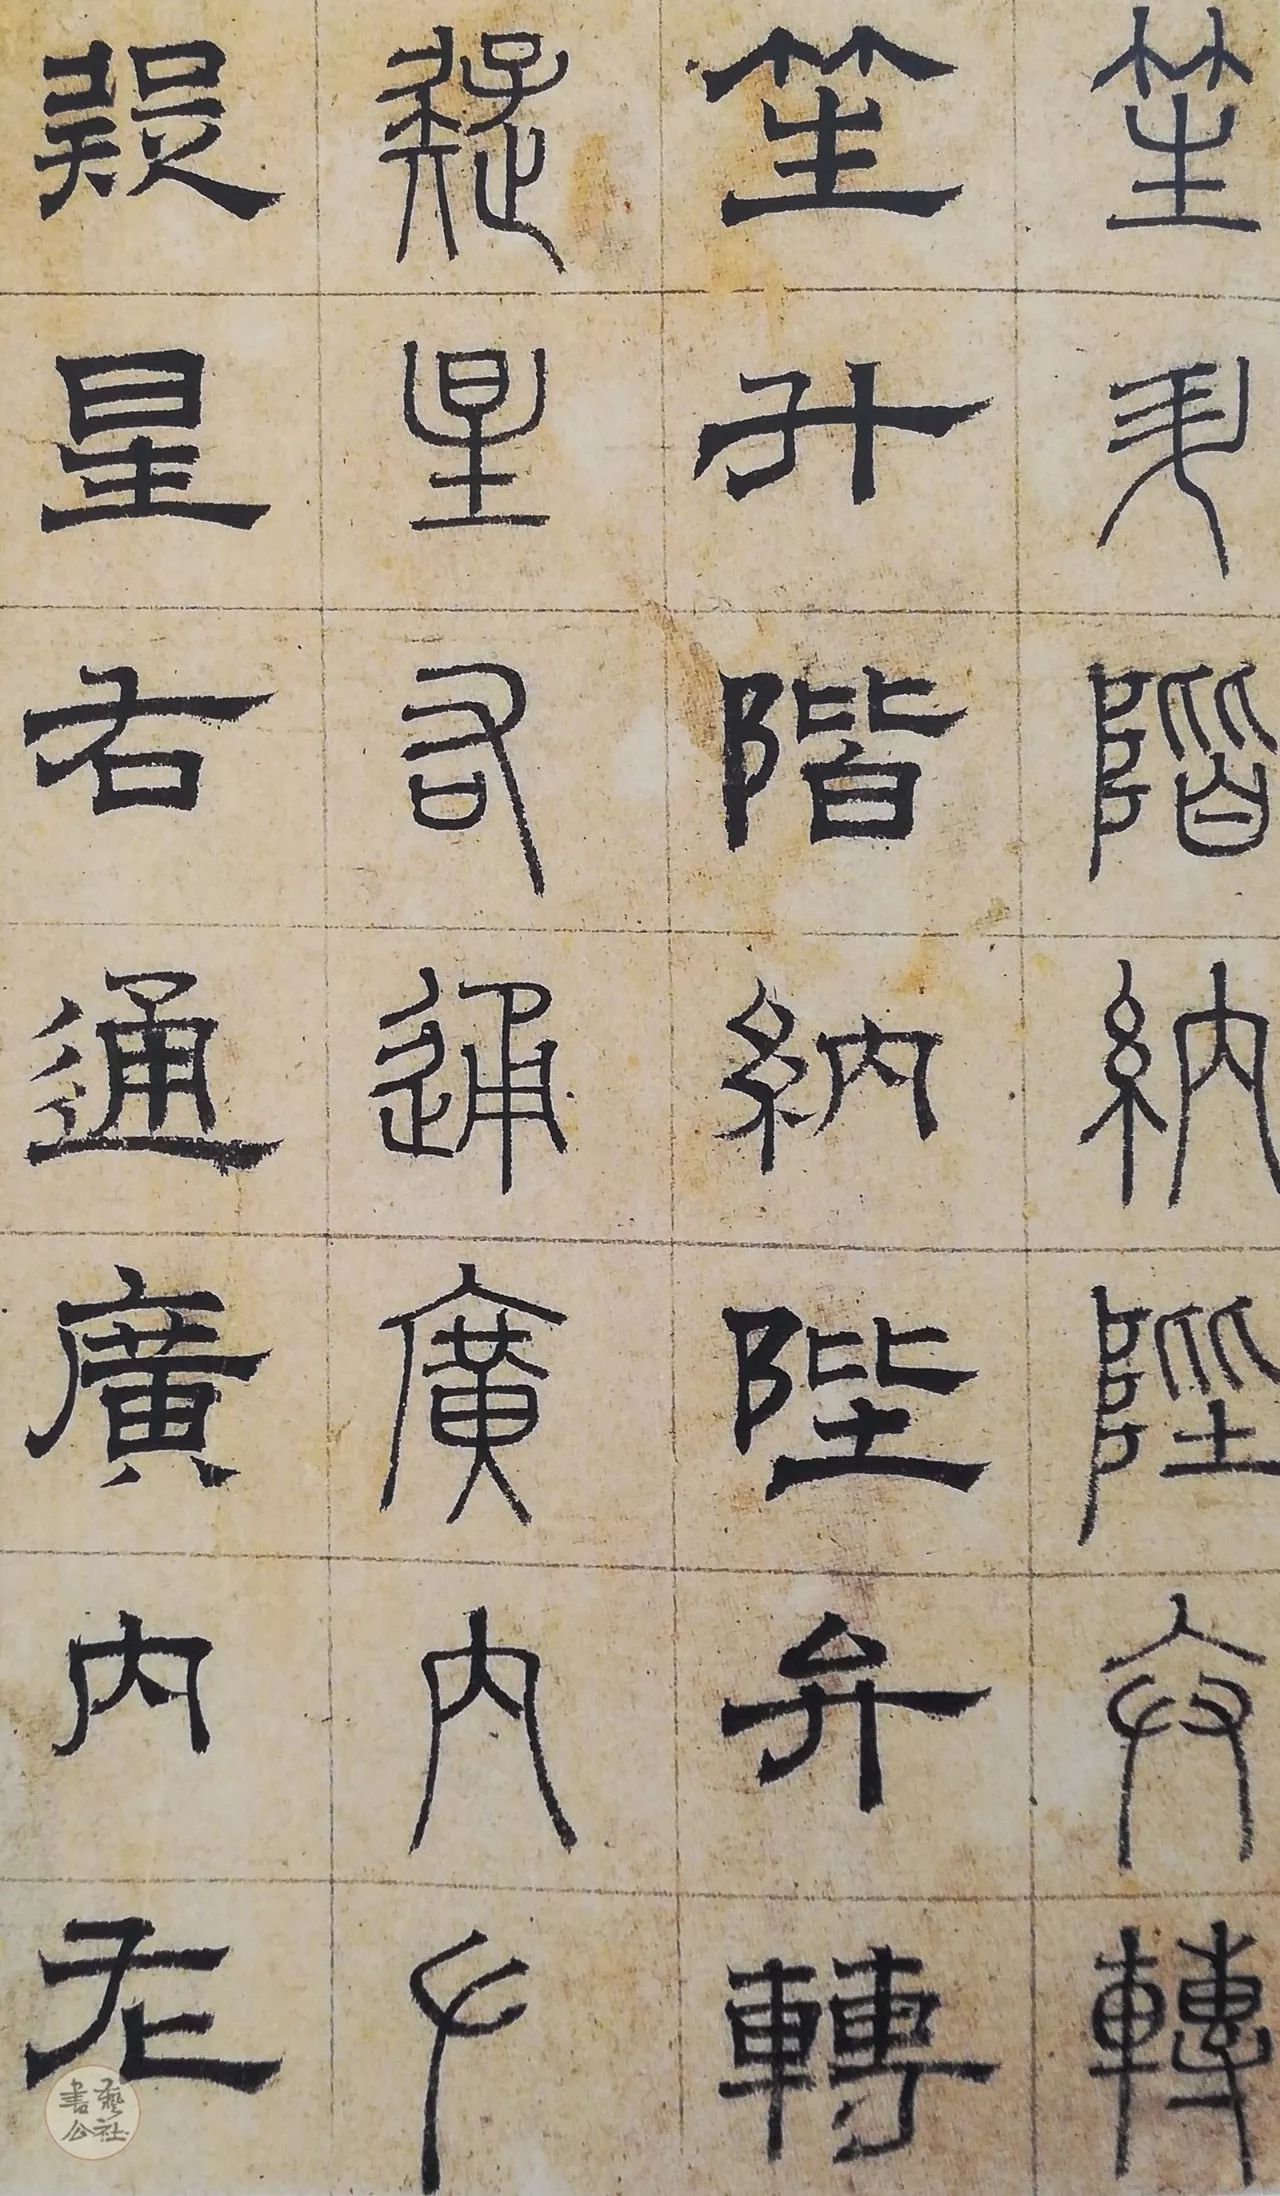 笙升階納陛弁轉
笙升階納陛弁轉
疑星右通廣内左
疑星右通廣内左
書藝公社